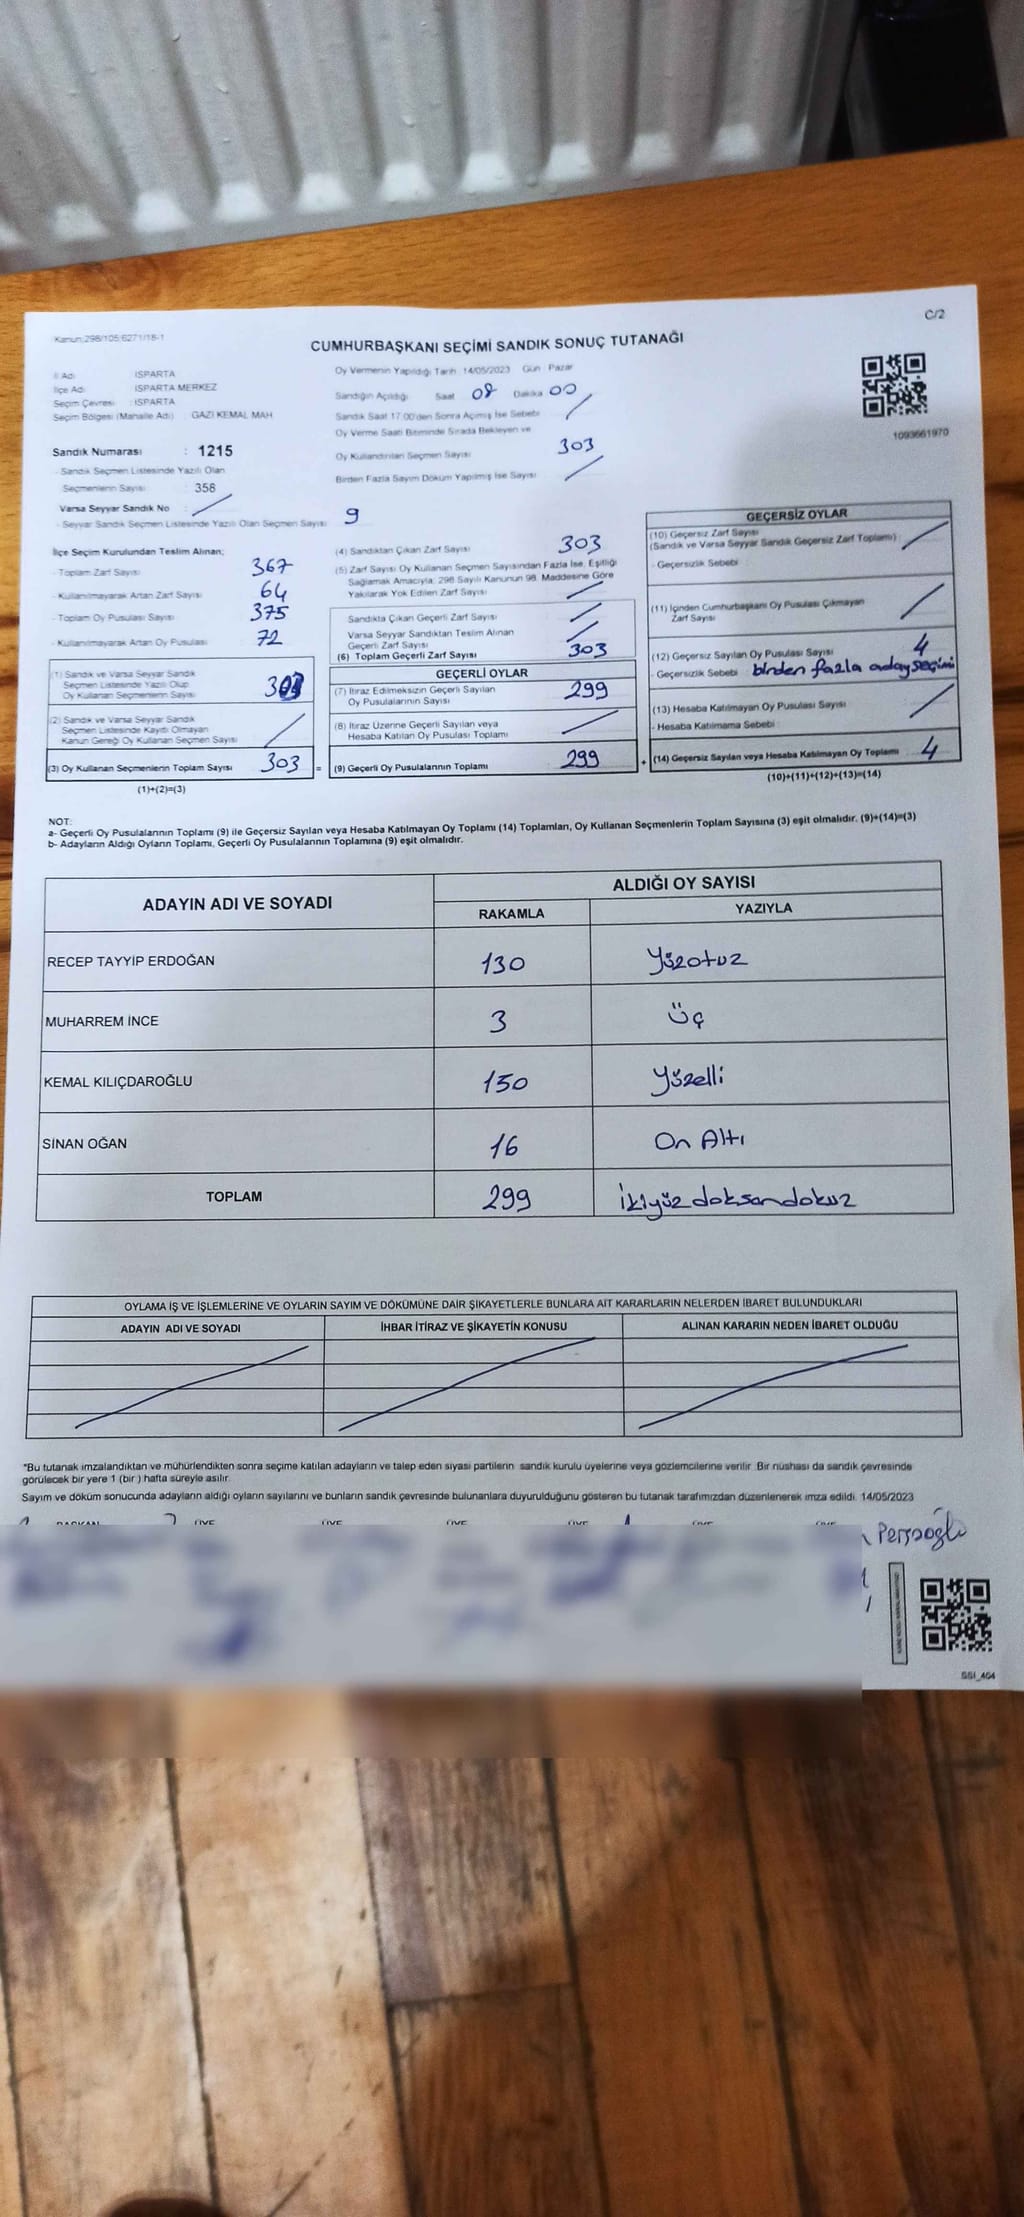 Kanun:298/105;6271/18-1
C/2
CUMHURBAŞKANI SEÇİMİ SANDIK SONUÇ TUTANAĞI
İl Adı ISPARTA
İlçe Adı ISPARTA MERKEZ
Seçim Çevresi : ISPARTA
Seçim Bölgesi (Mahalle Adı) : GAZI KEMAL MAH.
Sandık Numarası : 1215
- Sandık Seçmen Listesinde Yazılı Olan
Seçmenlerin Sayısı : 358
Varsa Seyyar Sandık No
- Seyyar Sandık Seçmen Listesinde Yazılı Olan Seçmen Sayısı 9
Oy Vermenin Yapıldığı Tarih 14/05/2023 Gün Pazar
Sandığın Açıldığı Saat 08 Dakika 00
Sandık Saat 17.00'den Sonra Açılmış İse Sebebi
Oy Verme Saati Bitiminde Sırada Bekleyen ve
Oy Kullandırılan Seçmen Sayısı 303
Birden Fazla Sayım Döküm Yapılmış İse Sayısı
1093661970
İlçe Seçim Kurulundan Teslim Alınan;
- Toplam Zarf Sayısı 367
- Kullanılmayarak Artan Zarf Sayısı 64
- Toplam Oy Pusulası Sayısı 375
- Kullanılmayarak Artan Oy Pusulası 72
(1) Sandık ve Varsa Seyyar Sandık
Seçmen Listesinde Yazılı Olup
Oy Kullanan Seçmenlerin Sayısı 303
(2) Sandık ve Varsa Seyyar Sandık
Seçmen Listesinde Kaydı Olmayan
Kanun Gereği Oy Kullanan Seçmen Sayısı
(3) Oy Kullanan Seçmenlerin Toplam Sayısı 303 =
(1)+(2)=(3)
(4) Sandıktan Çıkan Zarf Sayısı 303
(5) Zarf Sayısı Oy Kullanan Seçmen Sayısından Fazla İse, Eşitliği
Sağlamak Amacıyla; 298 Sayılı Kanunun 98. Maddesine Göre
Yakılarak Yok Edilen Zarf Sayısı
Sandıkta Çıkan Geçerli Zarf Sayısı
Varsa Seyyar Sandıktan Teslim Alınan
Geçerli Zarf Sayısı
(6) Toplam Geçerli Zarf Sayısı 303
GEÇERLİ OYLAR
(7) İtiraz Edilmeksizin Geçerli Sayılan
Oy Pusulalarının Sayısı 299
(8) İtiraz Üzerine Geçerli Sayılan veya
Hesaba Katılan Oy Pusulası Toplamı
(9) Geçerli Oy Pusulalarının Toplamı 299 +
GEÇERSİZ OYLAR
(10) Geçersiz Zarf Sayısı
(Sandık ve Varsa Seyyar Sandık Geçersiz Zarf Toplamı)
- Geçersizlik Sebebi :
(11) İçinden Cumhurbaşkanı Oy Pusulası Çıkmayan
Zarf Sayısı
(12) Geçersiz Sayılan Oy Pusulası Sayısı 4
- Geçersizlik Sebebi : birden fazla aday seçimi
(13) Hesaba Katılmayan Oy Pusulası Sayısı
- Hesaba Katılmama Sebebi :
(14) Geçersiz Sayılan veya Hesaba Katılmayan Oy Toplamı 4
(10)+(11)+(12)+(13)=(14)
NOT:
a- Geçerli Oy Pusulalarının Toplamı (9) ile Geçersiz Sayılan veya Hesaba Katılmayan Oy Toplamı (14) Toplamları, Oy Kullanan Seçmenlerin Toplam Sayısına (3) eşit olmalıdır. (9)+(14)=(3)
b- Adayların Aldığı Oyların Toplamı, Geçerli Oy Pusulalarının Toplamına (9) eşit olmalıdır.
ADAYIN ADI VE SOYADI ALDIĞI OY SAYISI
RAKAMLA YAZIYLA
RECEP TAYYİP ERDOĞAN 130 Yüzotuz
MUHARREM İNCE 3 Üç
KEMAL KILIÇDAROĞLU 150 Yüzelli
SİNAN OĞAN 16 On Altı
TOPLAM 299 İkiyüz doksandokuz
OYLAMA İŞ VE İŞLEMLERİNE VE OYLARIN SAYIM VE DÖKÜMÜNE DAİR ŞİKAYETLERLE BUNLARA AİT KARARLARIN NELERDEN İBARET BULUNDUKLARI
ADAYIN ADI VE SOYADI İHBAR İTİRAZ VE ŞİKAYETİN KONUSU ALINAN KARARIN NEDEN İBARET OLDUĞU
*Bu tutanak imzalandıktan ve mühürlendikten sonra seçime katılan adayların ve talep eden siyasi partilerin sandık kurulu üyelerine veya gözlemcilerine verilir. Bir nüshası da sandık çevresinde
görülecek bir yere 1 (bir ) hafta süreyle asılır.
Sayım ve döküm sonucunda adayların aldığı oyların sayılarını ve bunların sandık çevresinde bulunanlara duyurulduğunu gösteren bu tutanak tarafımızdan düzenlenerek imza edildi. 14/05/2023
BAŞKAN ÜYE ÜYE ÜYE ÜYE ÜYE ÜYE
SSI_404